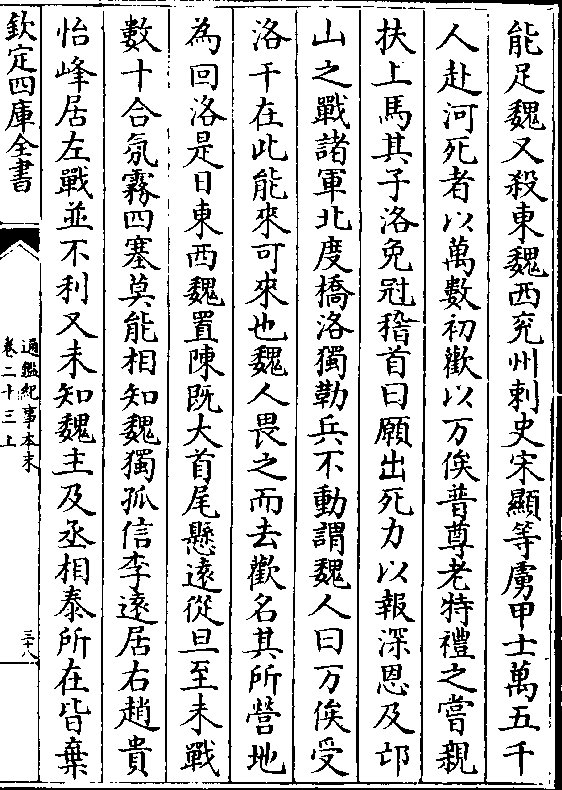 能足魏又殺東魏西兖州刺史宋顯等虜甲士萬五千
人赴河死者以萬數初歡以万俟普尊老特禮之嘗親
扶上馬其子洛免冠稽首曰願出死力以報深恩及邙
山之戰諸軍北度橋洛獨勒兵不動謂魏人曰万俟受
洛干在此能來可來也魏人畏之而去歡名其所營地
為回洛是日東西魏置陳既大首尾懸遠從旦至未戰
數十合氛霧四塞莫能相知魏獨孤信李遠居右趙貴
怡峰居左戰並不利又未知魏主及丞相泰所在皆棄
欽定四庫全書
通鑑紀事本末
卷二十三上
三十八